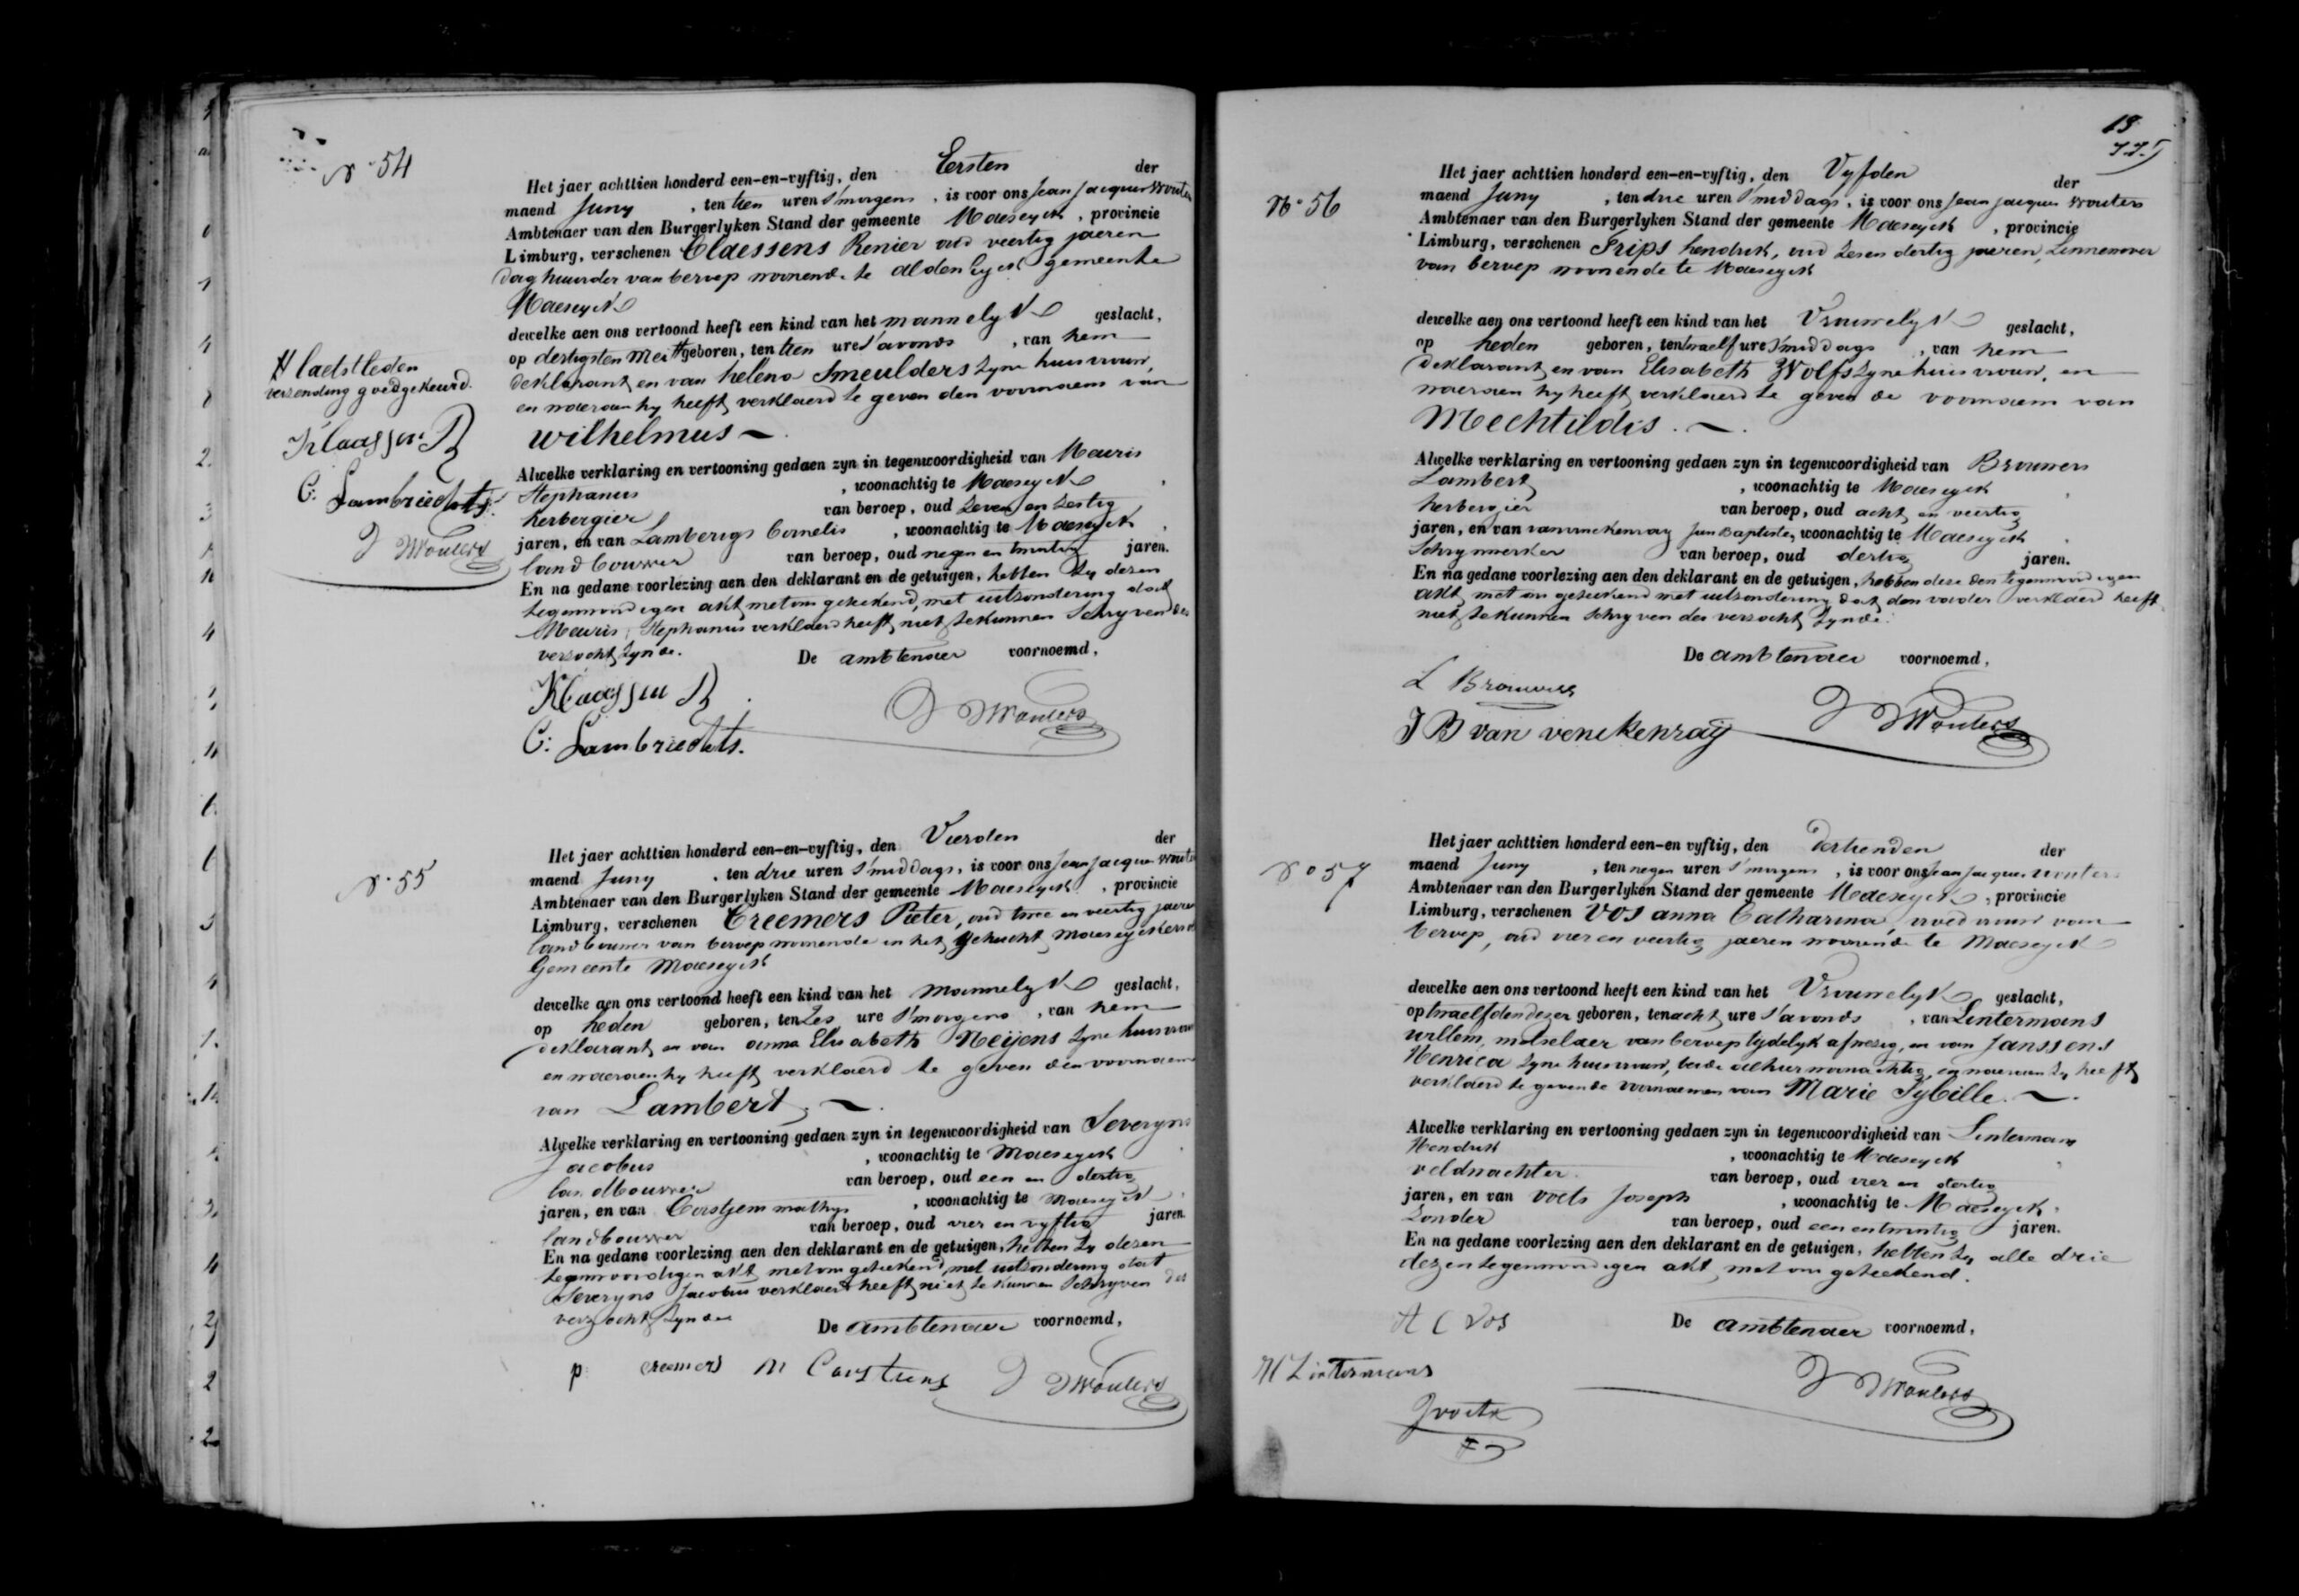 N° 54
Het jaer achttien honderd een-en-vyftig, den Eersten der
maend Juny , ten tien uren s'morgens , is voor ons Jean Jacques Wouters
Ambtenaer van den Burgerlyken Stand der gemeente Maeseyck , provincie
Limburg, verschenen Claessens Renier oud veertig jaeren
daghuurder van beroep woonende te aldeneyck gemeente
Maeseyck
dewelke aen ons vertoond heeft een kind van het mannelyk geslacht,
op dertigsten Mei # geboren, ten tien ure s'avonds , van hem
deklarant en van helena Smeulders zyne huisvrouw,
en waeraen hy heeft verklaerd te geven den voornaem van
wilhelmus
# laetstleden
verzending goedgekeurd.
Klaassen R
C: Lambriechts
J J Wouters
Alwelke verklaring en vertooning gedaen zyn in tegenwoordigheid van Meuris
Stephanus , woonachtig te Maeseyck ,
herbergier van beroep, oud zeven en zestig
jaren, en van Lamberigs Cornelis , woonachtig te Maeseyck ,
landbouwer van beroep, oud negen en twintig jaren.
En na gedane voorlezing aen den deklarant en de getuigen, hebben zy dezen
tegenwoordigen akt met ons geteekend, met uitzondering dat
Meuris, Stephanus verklaerd heeft niet te kunnen Schryven des
verzocht zynde.
De ambtenaer voornoemd,
Klaassen R
C: Lambriechts.
J J Wouters
N° 55
Het jaer achttien honderd een-en-vyftig, den Vierden der
maend Juny , ten drie uren s'middags, is voor ons Jean Jacques Wouters
Ambtenaer van den Burgerlyken Stand der gemeente Maeseyck , provincie
Limburg, verschenen Creemers Pieter, oud twee en veertig jaeren
landbouwer van beroep woonende in het gehucht
Gemeente Maeseyck
dewelke aen ons vertoond heeft een kind van het mannelyk geslacht,
op heden geboren, ten zes ure s'morgens , van hem
deklarant en van anna Elisabeth Neijens zyne huisvrouw
en waeraen hy heeft verklaerd te geven den voornaem
van Lambert
Alwelke verklaring en vertooning gedaen zyn in tegenwoordigheid van Severyns
Jacobus , woonachtig te Maeseyck
landbouwer van beroep, oud een en dertig
jaren, en van Corstjens mathys , woonachtig te Maeseyck ,
landbouwer van beroep, oud vier en vyftig jaren.
En na gedane voorlezing aen den deklarant en de getuigen, hebben zy dezen
tegenwoordigen akt met ons geteekend, met uitzondering dat
Severyns Jacobus verklaerd heeft niet te kunnen Schryven des
verzocht zynde
De ambtenaer voornoemd,
p creemers M Corstiens J J Wouters
18
N° 56
Het jaer achttien honderd een-en-vyftig, den Vyfden der
maend Juny , ten drie uren s'middags, is voor ons Jean Jacques Wouters
Ambtenaer van den Burgerlyken Stand der gemeente Maeseyck , provincie
Limburg, verschenen Trips hendrik, oud zes en dertig jaeren, Linnenwever
van beroep woonende te Maeseyck
dewelke aen ons vertoond heeft een kind van het Vrouwelyk geslacht,
op heden geboren, ten twaelf ure s'middags , van hem
deklarant en van Elisabeth Wolfs zyne huisvrouw, en
waeraen hy heeft verklaerd te geven de voornaem van
Mechtildis.
Alwelke verklaring en vertooning gedaen zyn in tegenwoordigheid van Brouwers
Lambert , woonachtig te Maeseyck ,
herbergier van beroep, oud acht en veertig
jaren, en van vanvinckenray Jan Baptiste, woonachtig te Maeseyck ,
Schrynwerker van beroep, oud dertig jaren.
En na gedane voorlezing aen den deklarant en de getuigen, hebben deze den tegenwoordigen
akt met ons geteekend met uitzondering dat den vader verklaerd heeft
niet te kunnen schryven des verzocht zynde.
De ambtenaer voornoemd,
L Brouwers
J B van venckenraÿ
J J Wouters
N° 57
Het jaer achttien honderd een-en vyftig, den dertienden der
maend Juny , ten negen uren s'morgens , is voor ons Jean Jacques Wouters
Ambtenaer van den Burgerlyken Stand der gemeente Maeseyck , provincie
Limburg, verschenen Vos anna Catharina, vroedvrouw van
beroep, oud vier en veertig jaeren woonende te Maeseyck
dewelke aen ons vertoond heeft een kind van het Vrouwelyk geslacht,
op twaelfden dezer geboren, ten acht ure s'avonds , van Lintermans
willem, metselaer van beroep tydelyk afwezig, en van Janssens
Henrica zyne huisvrouw, beide alhier woonachtig, en waeraen zy heeft
verklaerd te geven de voornaemen van Marie Sybille.
Alwelke verklaring en vertooning gedaen zyn in tegenwoordigheid van Lintermans
Hendrik , woonachtig te Maeseyck
veldwachter van beroep, oud vier en dertig
jaren, en van voets Joseph , woonachtig te Maeseyck,
zonder van beroep, oud een en twintig jaren.
En na gedane voorlezing aen den deklarant en de getuigen, hebben zy alle drie
dezen tegenwoordigen akt met ons geteekend.
De ambtenaer voornoemd,
A C Vos
H Lintermans
J voets
J J Wouters